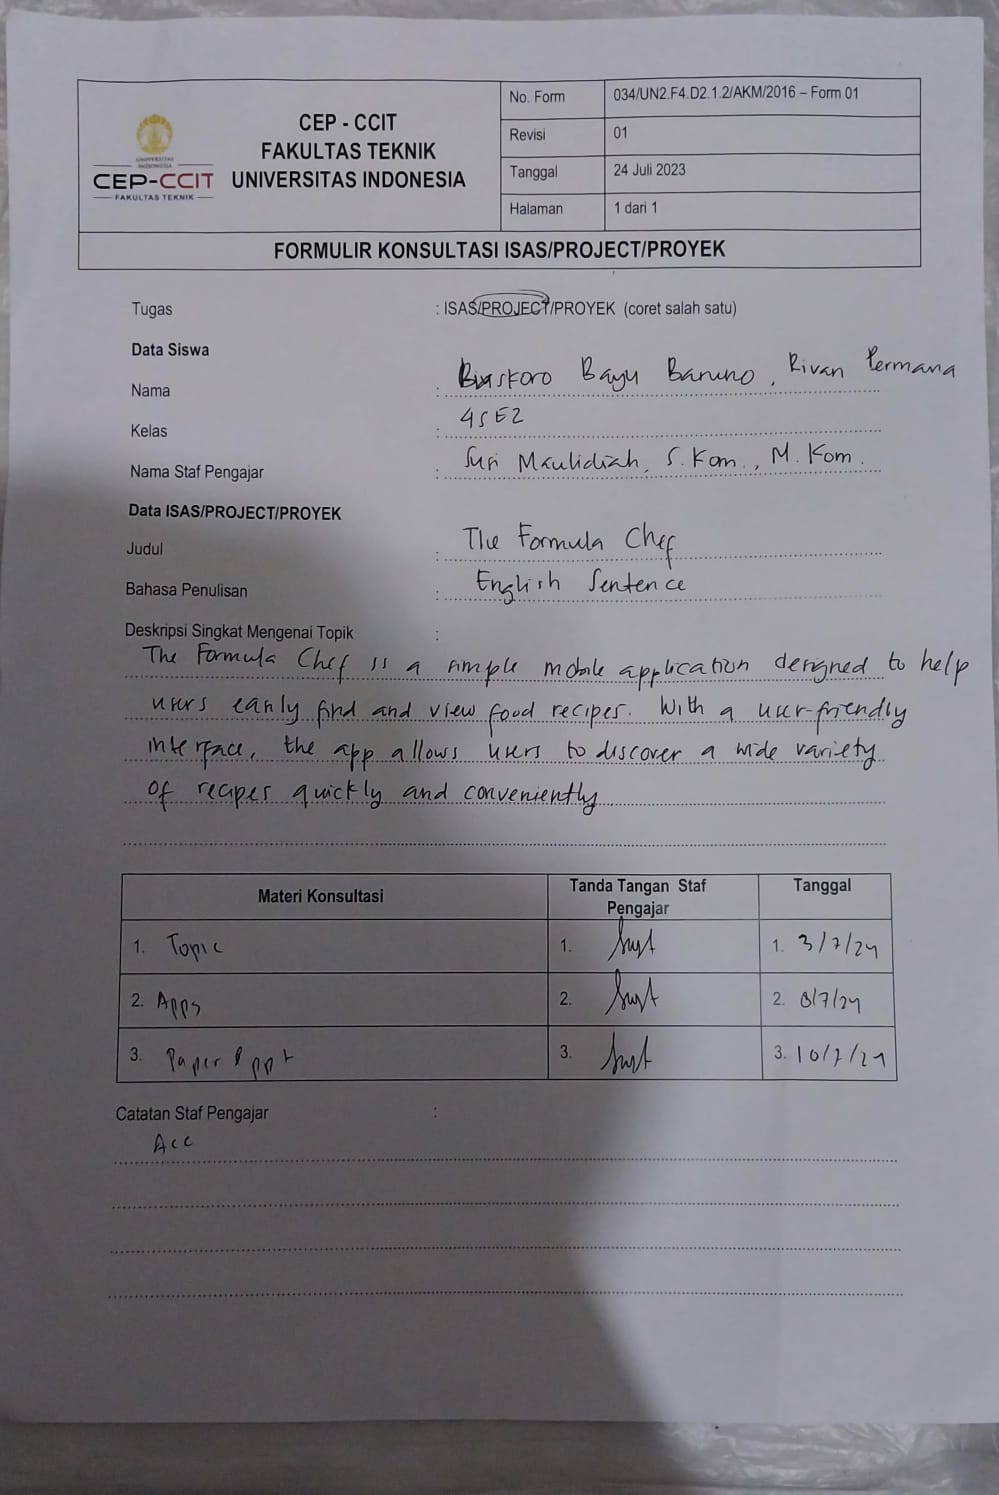 UNIVERSITAS
INDONESIA
CEP-CCIT
FAKULTAS TEKNIK
CEP - CCIT
FAKULTAS TEKNIK
UNIVERSITAS INDONESIA
No. Form 034/UN2.F4.D2.1.2/AKM/2016 – Form 01
Revisi 01
Tanggal 24 Juli 2023
Halaman 1 dari 1
FORMULIR KONSULTASI ISAS/PROJECT/PROYEK
Tugas : ISAS/PROJECT/PROYEK (coret salah satu)
Data Siswa
Nama : Biaskoro Bayu Baruno, Rivan Permana
Kelas : 4SE2
Nama Staf Pengajar : Suri Maulidiah, S.Kom., M.Kom.
Data ISAS/PROJECT/PROYEK
Judul : The Formula Chef
Bahasa Penulisan : English Sentence
Deskripsi Singkat Mengenai Topik :
The Formula Chef is a simple mobile application designed to help
users easily find and view food recipes. With a user-friendly
interface, the app allows users to discover a wide variety
of recipes quickly and conveniently
Materi Konsultasi Tanda Tangan Staf Pengajar Tanggal
1. Topic 1. 1. 3/7/24
2. Apps 2. 2. 8/7/24
3. Paper & ppt 3. 3. 10/7/24
Catatan Staf Pengajar :
Acc